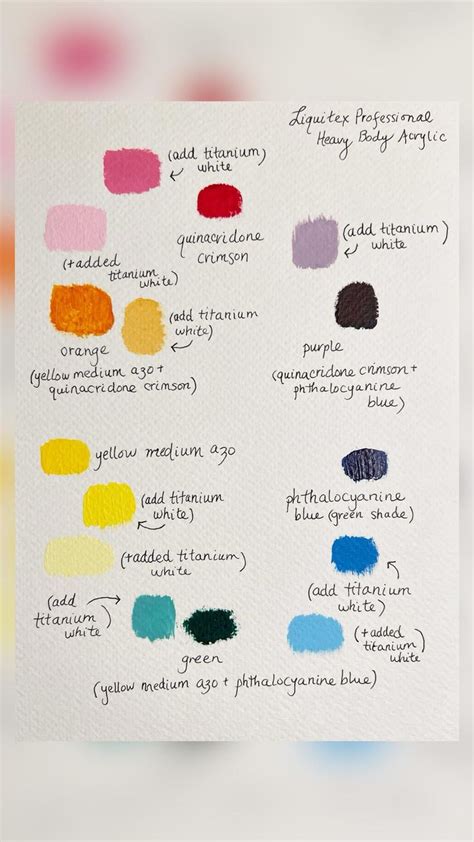 Liquitex Professional
Heavy Body Acrylic
(add titanium)
white
quinacridone
crimson
(+added
titanium
white)
(add titanium)
white
orange
(add titanium
white)
(yellow medium azo +
quinacridone crimson)
purple
(quinacridone crimson +
phthalocyanine
blue)
yellow medium azo
(add titanium
white)
(+added titanium)
white
(add
titanium
white)
green
(yellow medium azo + phthalocyanine blue)
phthalocyanine
blue (green shade)
(add titanium
white)
(+added
titanium)
white